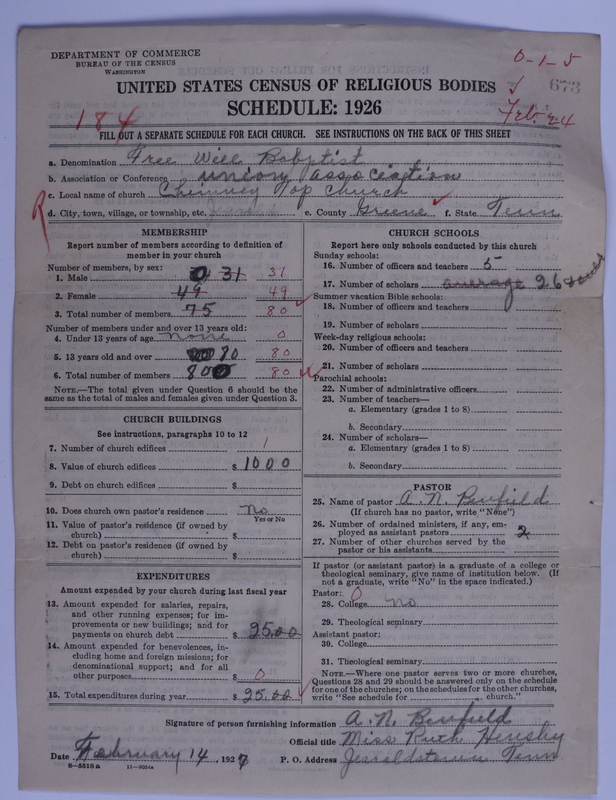 DEPARTMENT OF COMMERCE
BUREAU OF THE CENSUS
WASHINGTON
0-1-5
673
UNITED STATES CENSUS OF RELIGIOUS BODIES
SCHEDULE: 1926
184
Feb 24
FILL OUT A SEPARATE SCHEDULE FOR EACH CHURCH. SEE INSTRUCTIONS ON THE BACK OF THIS SHEET
a. Denomination Free Will Babptist
b. Association or Conference union association
c. Local name of church Chimney Top church
d. City, town, village, or township, etc. e. County Greene f. State Tenn
MEMBERSHIP
Report number of members according to definition of member in your church
Number of members, by sex:
1. Male 31 31
2. Female 49 49
3. Total number of members 75 80
Number of members under and over 13 years old:
4. Under 13 years of age none 0
5. 13 years old and over 80 80
6. Total number of members 80 80
NOTE.—The total given under Question 6 should be the same as the total of males and females given under Question 3.
CHURCH BUILDINGS
See instructions, paragraphs 10 to 12
7. Number of church edifices 1
8. Value of church edifices $ 1000
9. Debt on church edifices $
10. Does church own pastor's residence No
Yes or No
11. Value of pastor's residence (if owned by church) $
12. Debt on pastor's residence (if owned by church) $
EXPENDITURES
Amount expended by your church during last fiscal year
13. Amount expended for salaries, repairs, and other running expenses; for improvements or new buildings; and for payments on church debt $ 25.00
14. Amount expended for benevolences, including home and foreign missions; for denominational support; and for all other purposes $ 0
15. Total expenditures during year $ 25.00
CHURCH SCHOOLS
Report here only schools conducted by this church
Sunday schools:
16. Number of officers and teachers 5
17. Number of scholars average 26
Summer vacation Bible schools:
18. Number of officers and teachers
19. Number of scholars
Week-day religious schools:
20. Number of officers and teachers
21. Number of scholars
Parochial schools:
22. Number of administrative officers
23. Number of teachers—
a. Elementary (grades 1 to 8)
b. Secondary
24. Number of scholars—
a. Elementary (grades 1 to 8)
b. Secondary
PASTOR
25. Name of pastor A. N. Benfield
(If church has no pastor, write "None")
26. Number of ordained ministers, if any, employed as assistant pastors 2
27. Number of other churches served by the pastor or his assistants
If pastor (or assistant pastor) is a graduate of a college or theological seminary, give name of institution below. (If not a graduate, write "No" in the space indicated.)
Pastor: 0
28. College no
29. Theological seminary
Assistant pastor:
30. College
31. Theological seminary
NOTE.—Where one pastor serves two or more churches, Questions 28 and 29 should be answered only on the schedule for one of the churches; on the schedules for the other churches, write "See schedule for church."
Signature of person furnishing information A. N. Benfield
Official title Miss Ruth Hensley
Date February 14, 1927 P. O. Address Jearoldstown Tenn
8-5518a 11-9054a